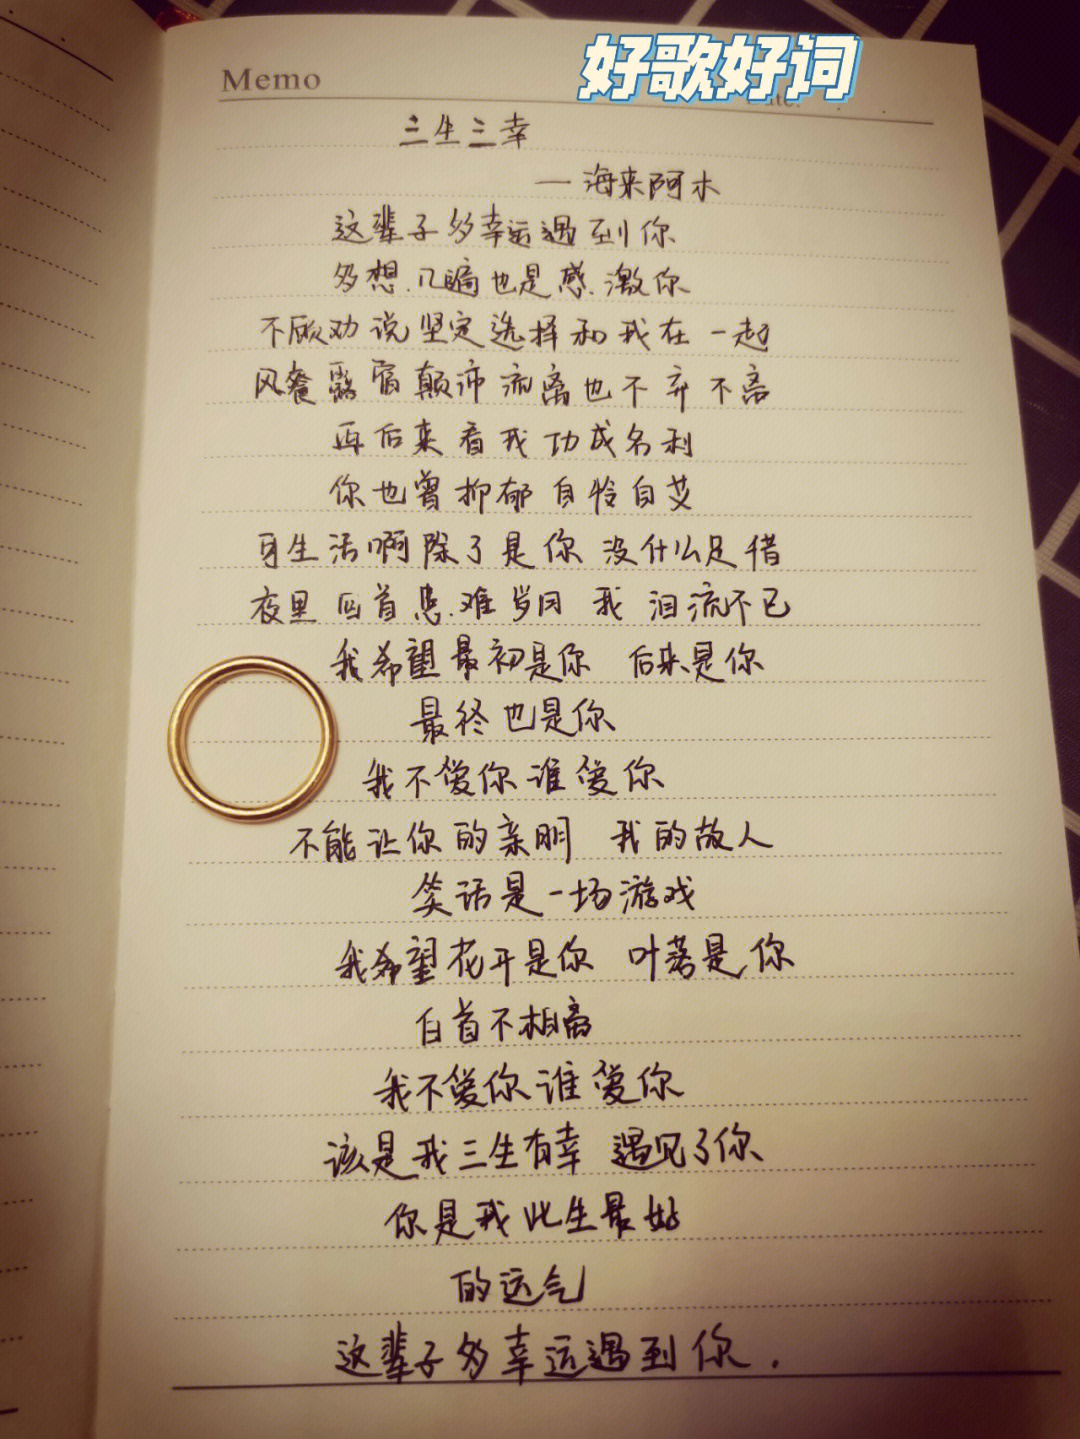 好歌好词
Memo
Date:
三生三幸
—海来阿木
这辈子多幸运遇到你
多想几遍也是感激你
不顾劝说坚定选择和我在一起
风餐露宿颠沛流离也不弃不离
再后来看我功成名利
你也曾抑郁自怜自艾
穿生活啊除了是你 没什么足惜
夜里回首患难岁月 我泪流不已
我希望最初是你 后来是你
最终也是你
我不爱你谁爱你
不能让你的亲朋 我的故人
笑话是一场游戏
我希望花开是你 叶落是你
白首不相离
我不爱你谁爱你
该是我三生有幸 遇见了你
你是我此生最好
的运气
这辈子多幸运遇到你.